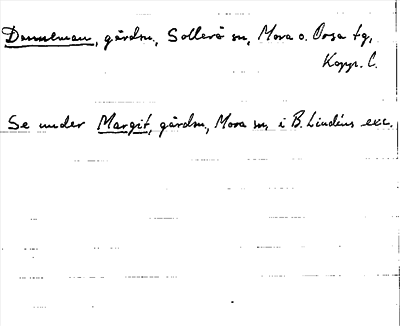 Dannelman, gårdsn, Sollerö sn, Mora o. Orsa tg,
Kopp. l.
Se under Margit, gårdsn, Mora sn, i B. Lindéns exc.